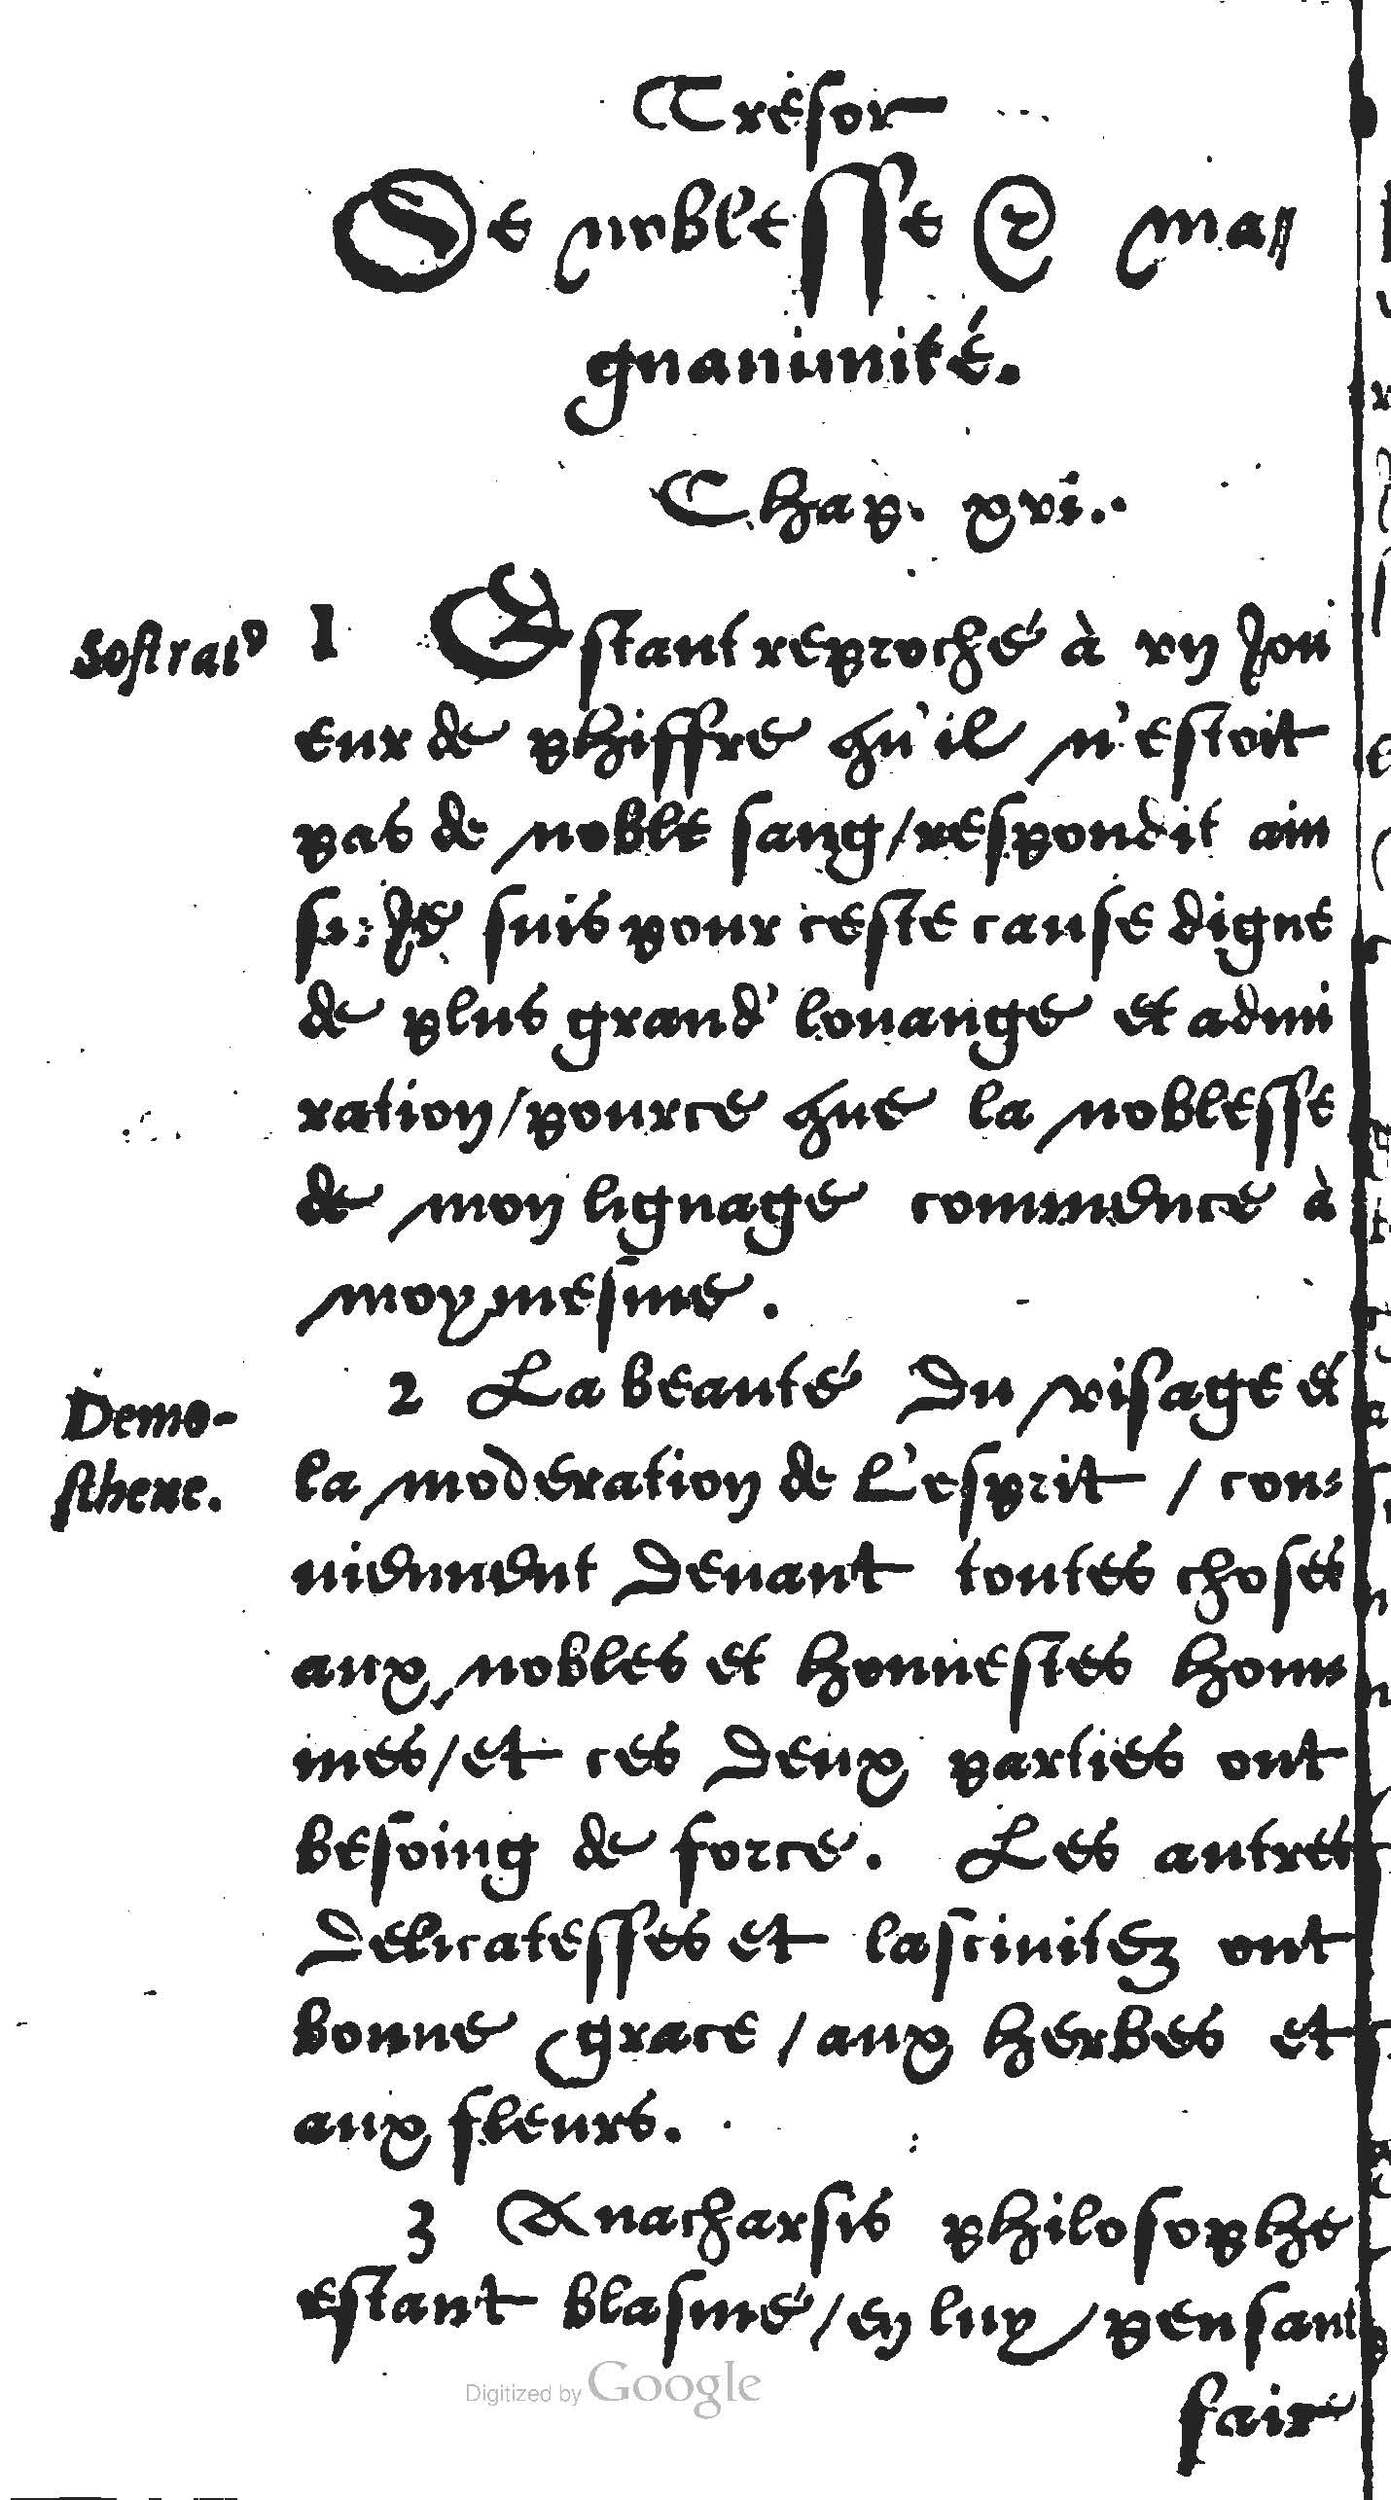 Tresor
De noblesse & ma⸗
gnanimité.
Chap. xvi.
Sostrat9
1 Estant reproché à vn Jou
eur de phiffre qu'il n'estoit
pas de noble sang/respondit ain
si: Je suis pour ceste cause digne
de plus grand' louange et admi
ration/pource que la noblesse
de mon lignage commence à
moymesme.
Demo-
sthene.
2 La beauté du visage et
la moderation de L'esprit / con⸗
uiennent deuant toutes choses
aux nobles et honnestes hom⸗
mes/et ces deux parties ont
besoing de force. Les autres
delicatesses et lasciuitez ont
bonne grace / aux herbes et
aux fleurs.
3 Anacharsis philosophe
estant blasmé/en luy pensant
faire
Digitized by Google